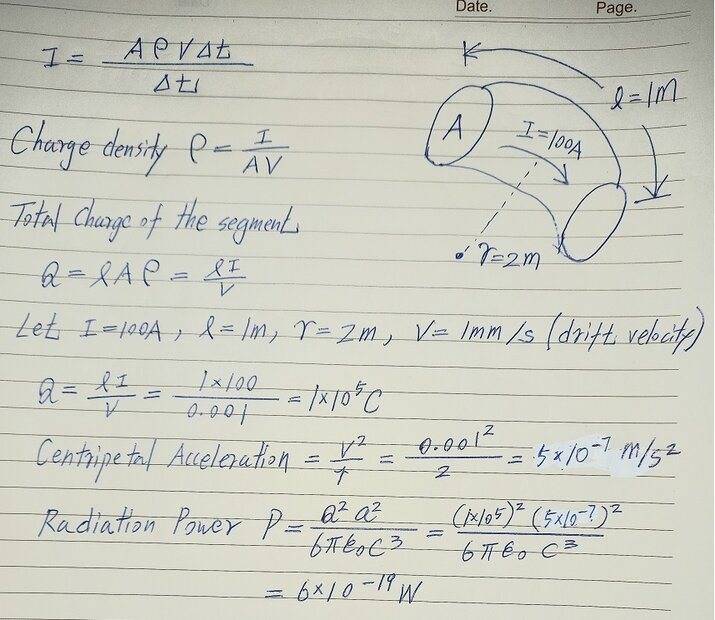 Date. Page.
I = AρVΔt / Δt
l = 1M
A
I = 100A
r = 2m
Charge density ρ = I / AV
Total Charge of the segment
Q = lAρ = lI / V
Let I = 100A, l = 1m, r = 2m, V = 1mm/s (drift velocity)
Q = lI / V = 1×100 / 0.001 = 1×10⁵C
Centripetal Acceleration = V² / r = 0.001² / 2 = 5×10⁻⁷ m/s²
Radiation Power P = Q²a² / 6πε₀C³ = (1×10⁵)² (5×10⁻⁷)² / 6πε₀ C³
= 6×10⁻¹⁹ W